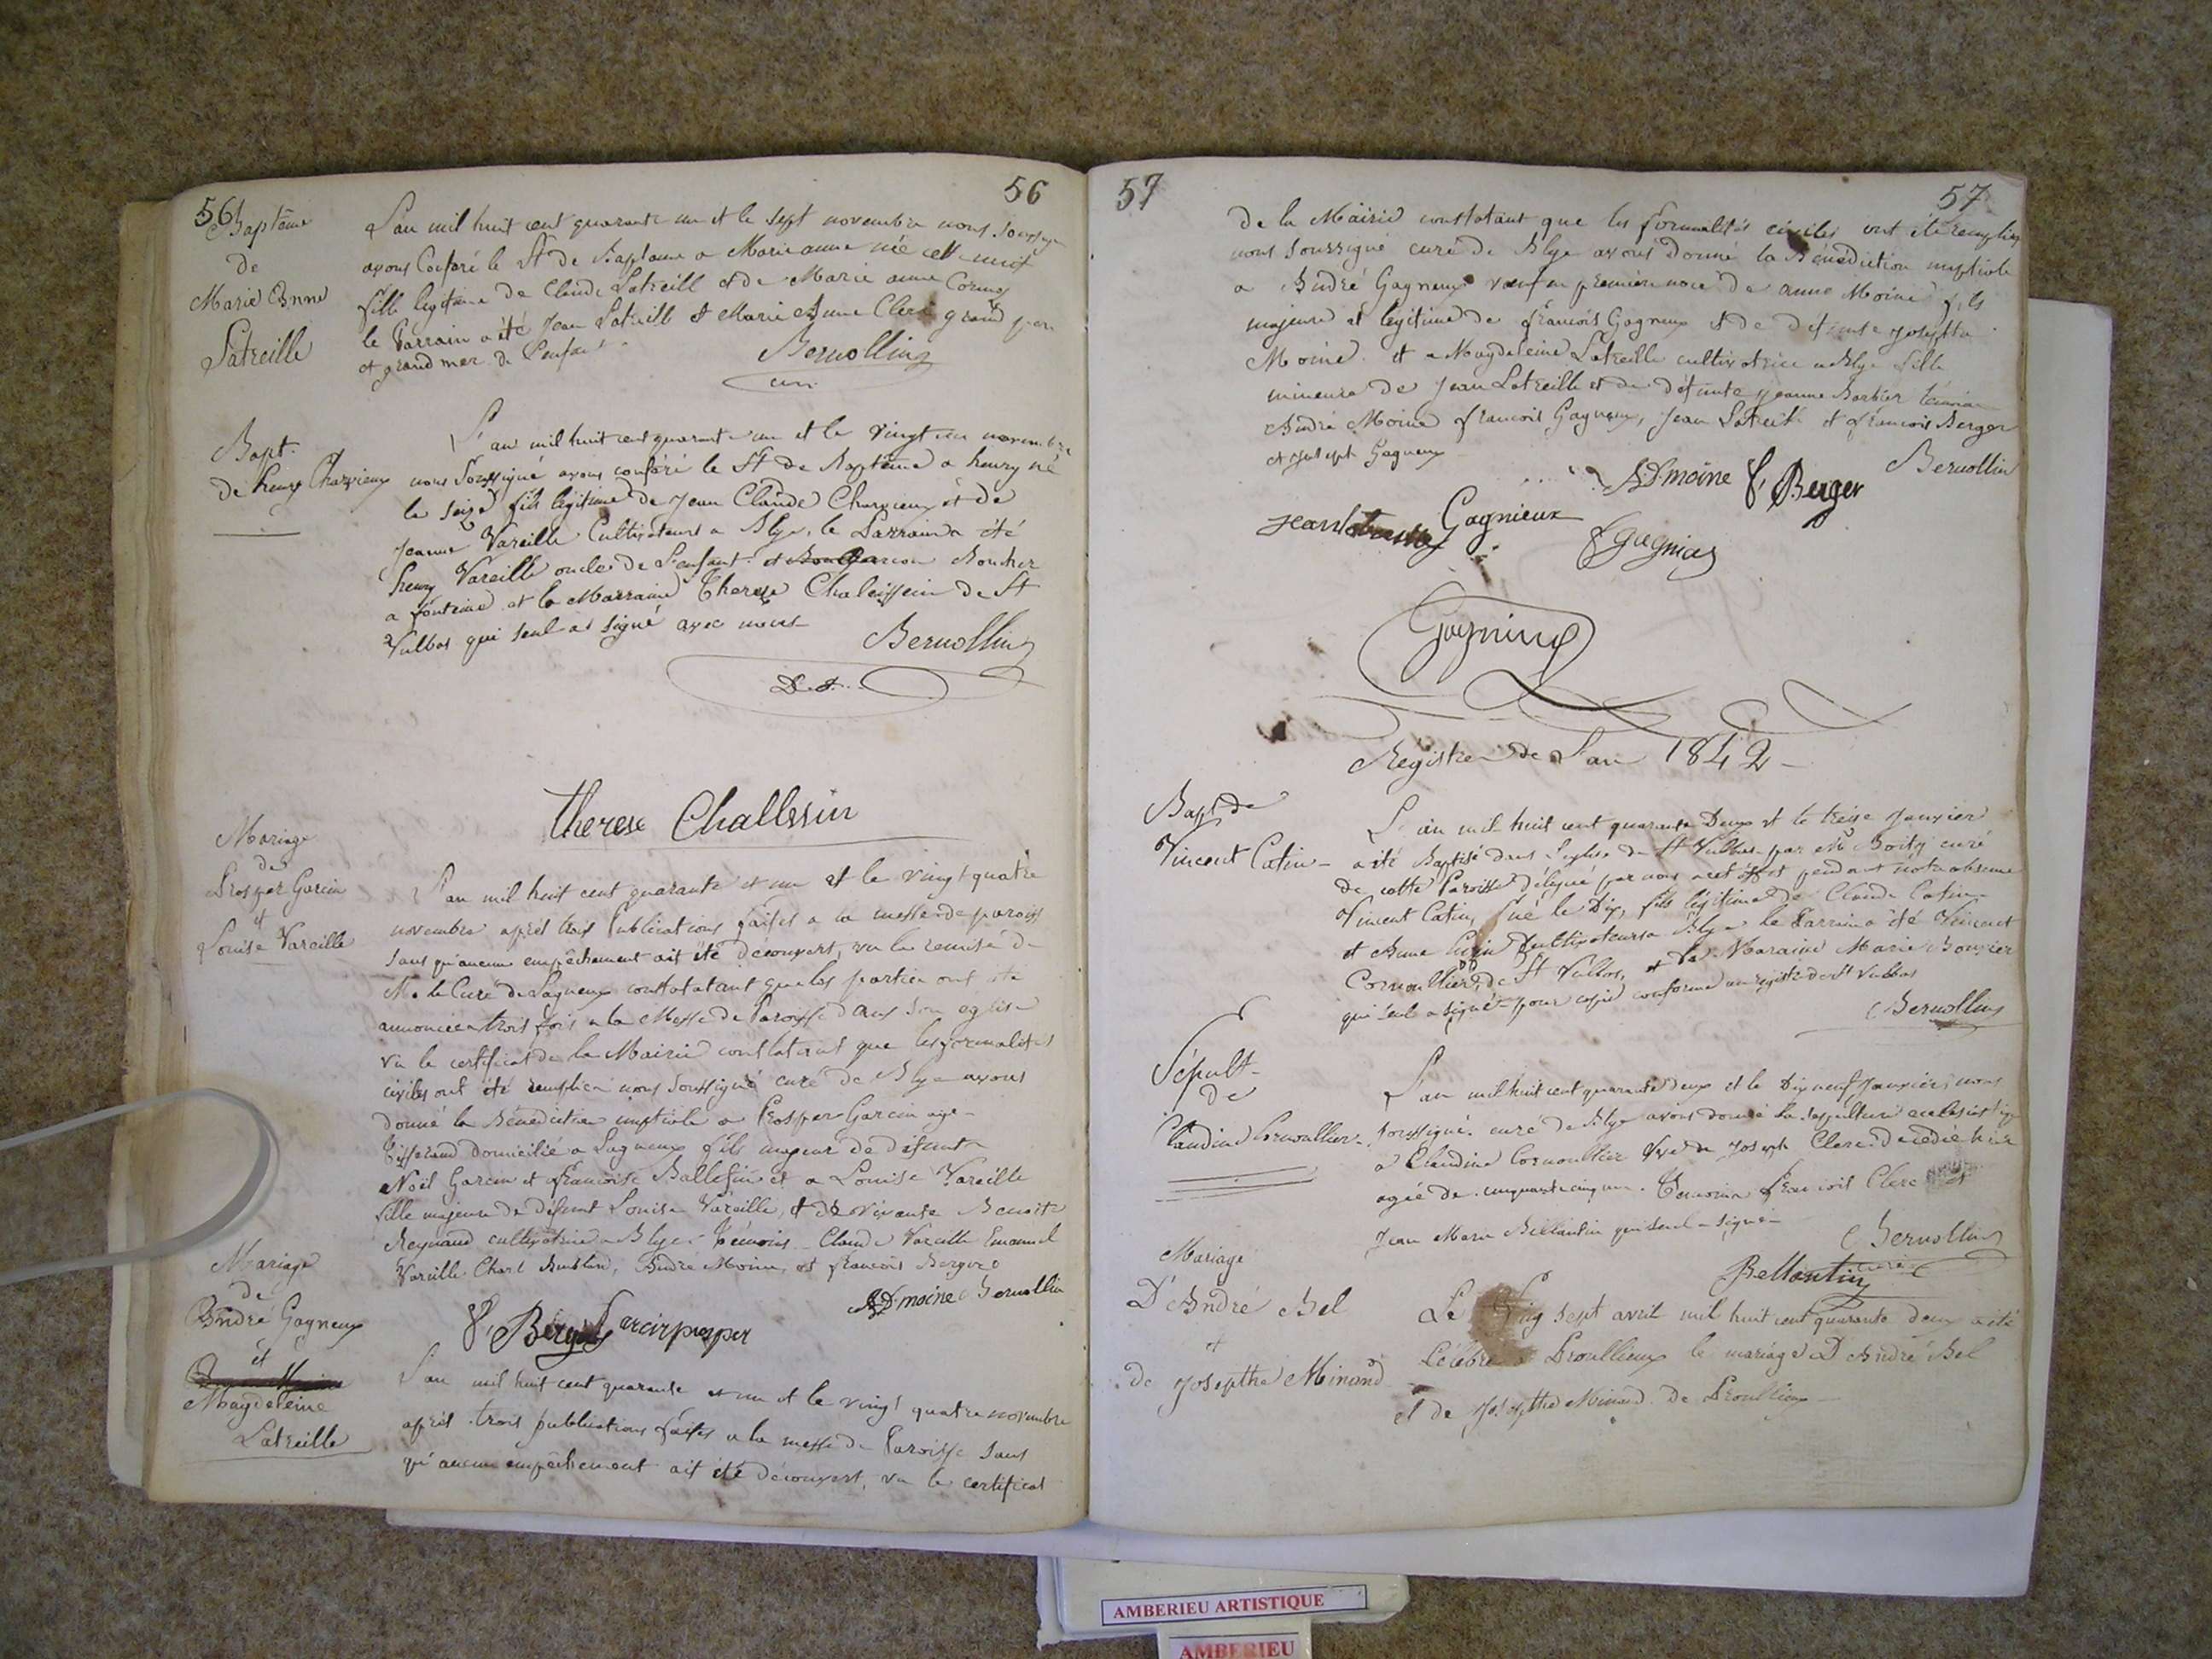 56
56
Baptême
de
Marie Anne
Latreille
L'an mil huit cent quarante un et le sept novembre nous soussigné
avons conféré le St de Baptême a Marie anne née cette nuit
fille legitime de Claude Latreill et de Marie anne
le Parrain a été Jean Latreill et Marie Anne Clerc grand pere
et grand mere de l'enfant
Bernollin
curé
Bapt.
de henry Charvieux
L'an mil huit cent quarante un et le vingt un novembre
nous soussigné avons conféré le St de Baptême a henry né
le seize fils legitime de Jean Claude Charvieux et de
Jeanne Vareille Cultivateurs a Blye, le Parrain a été
henry Vareille oncle de l'enfant et Boucher
a fontaine et la Marraine Therese Chaleissein de St
Vulbas qui seul a signé avec nous
Bernollin
D. s.
therese Challesin
Mariage
de
Prosper Garcin
et
Louise Vareille
L'an mil huit cent quarante et un et le vingt quatre
novembre après trois Publications faites a la messe de paroisse
sans qu'aucun empêchement ait été découvert, vu la remise de
Mr le Curé de Lagneux constatatant que les parties ont été
annoncées trois fois a la Messe de Paroisse dans son eglise
vu le certificat de la Mairie constatant que les formalités
civiles ont été remplies nous soussigné curé de Blye avons
donné la Bénédiction nuptiale a Prosper Garcin age
Tisserand domicilié a Lagneux fils majeur de défunt
Noël Garcin et francoise Ballefin et a Louise Vareille
fille majeure de défunt Louise Vareille, et de vivante Benoite
Reynaud cultivatrice a Blye. Témoins Claude Vareille Emanuel
Vareille Charl André Moine, et francois Berger
AD moine Bernollin
f, Berger Garcin prosper
Mariage
de
André Gagneux
et
Magdeleine
Latreille
L'an mil huit cent quarante et un et le vingt quatre novembre
après trois publications faites a la messe de Paroisse sans
qu'aucun empêchement ait été découvert, vu le certificat
57
57
de la Mairie constatant que les formalités civiles ont été remplies
nous soussigné curé de Blye avons donné la Bénédiction nuptiale
a André Gagneux veuf en premiere noce de anne Moine fils
majeure et legitime de francois Gagneux et de défunte josephte
Moine. et a Magdeleine Latreille cultivatrice a Blye fille
mineure de Jean Latreille et de défunte jeanne Barbier témoins
André Moine francois Gagneux, Jean Latreill et francois Berger
et joseph Gagneux
Bernollin
AD moine f, Berger
jean latreille Gagnieux
Registre de l'an 1842
Bapt de
Vincent Catin
L'an mil huit cent quarante Deux et le treize Janvier
a été Baptisé dans l'eglise de St Vulbas par Mr curé
de cette Paroisse délégué par nous a cet effet pendant notre absence
Vincent Catin, né le Dix, fils legitime de Claude Catin
et Anne cultivateurs a Blye le Parrain a été Vincent
Cornoullier de St Vulbas, et la Maraine Marie Bouvier
qui seul a signé pour copie conforme au registre de St Vulbas
Bernollin
Sépult
de
Claudine Cornoullier
L'an mil huit cent quarante deux et le Dix neuf Janvier nous
soussigné curé de Blye avons donné la sépulture ecclesiastique
a Claudine Cornoullier Vve de Joseph Clerc decedée hier
agée de cinquante cinq ans. Temoins francois Clerc et
Jean Marie Bellantin qui seul a signé
Bernollin
curé
Bellantin
Mariage
D'André Bel
et
de josepthe Minand
Le sept avril mil huit cent quarante deux a été
célébré a Proullieux le mariage D'André Bel
et de josepthe Minand de Proullieux
AMBERIEU ARTISTIQUE
AMBERIEU